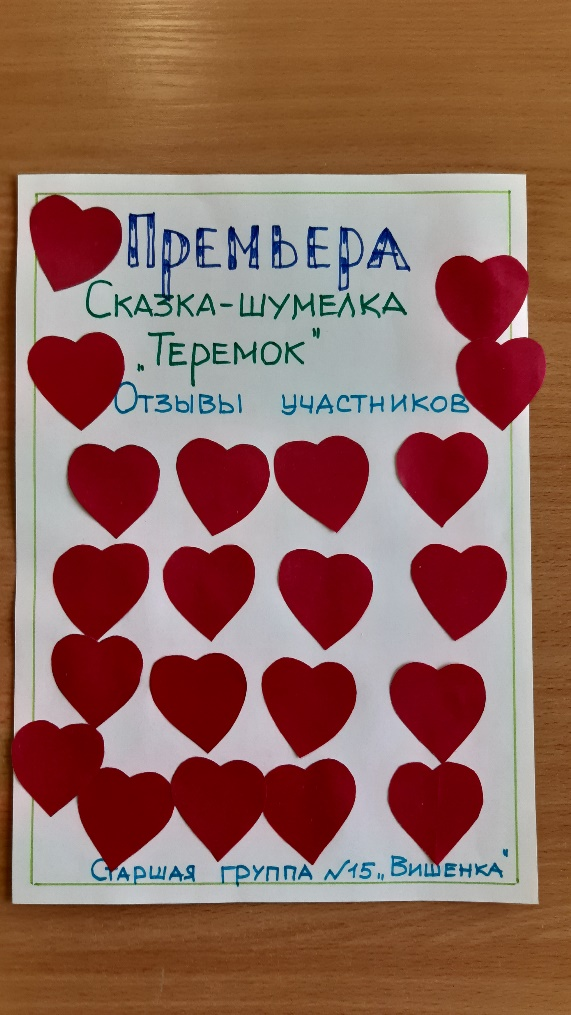 Премьера
Сказка-шумелка
„Теремок"
Отзывы участников
Старшая группа №15 „Вишенка"